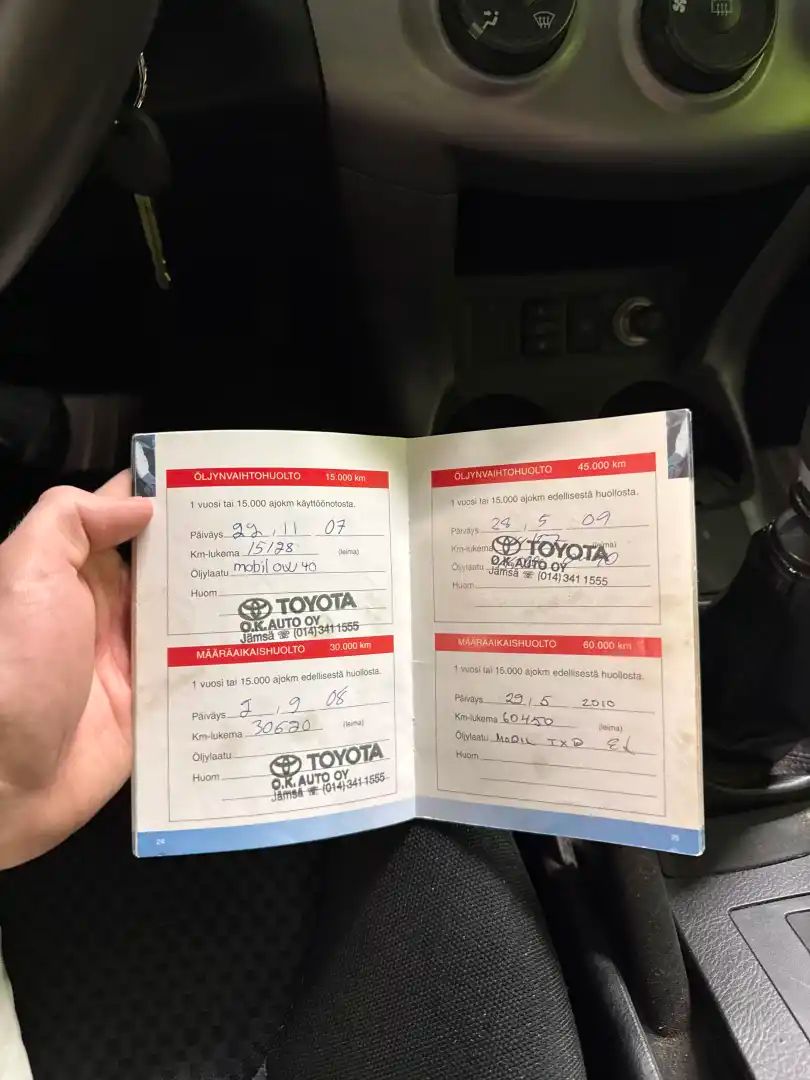 ÖLJYNVAIHTOHUOLTO 15.000 km
1 vuosi tai 15.000 ajokm käyttöönotosta.
Päiväys 22 . 11 07
Km-lukema 15128 (leima)
Öljylaatu mobil 0W40
Huom
TOYOTA
O.K. AUTO OY
Jämsä ☏ (014) 341 1555
MÄÄRÄAIKAISHUOLTO 30.000 km
1 vuosi tai 15.000 ajokm edellisestä huollosta.
Päiväys 2 . 9 08
Km-lukema 30620 (leima)
Öljylaatu
Huom
TOYOTA
O.K. AUTO OY
Jämsä ☏ (014) 341 1555
24
ÖLJYNVAIHTOHUOLTO 45.000 km
1 vuosi tai 15.000 ajokm edellisestä huollosta.
Päiväys 28 . 5 09
Km-lukema (leima)
Öljylaatu
Huom
TOYOTA
O.K. AUTO OY
Jämsä ☏ (014) 341 1555
MÄÄRÄAIKAISHUOLTO 60.000 km
1 vuosi tai 15.000 ajokm edellisestä huollosta.
Päiväys 29 . 5 2010
Km-lukema 60450 (leima)
Öljylaatu MOBIL
Huom
25